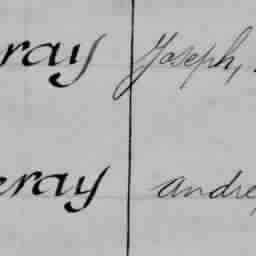 ray Joseph,
eray Andre